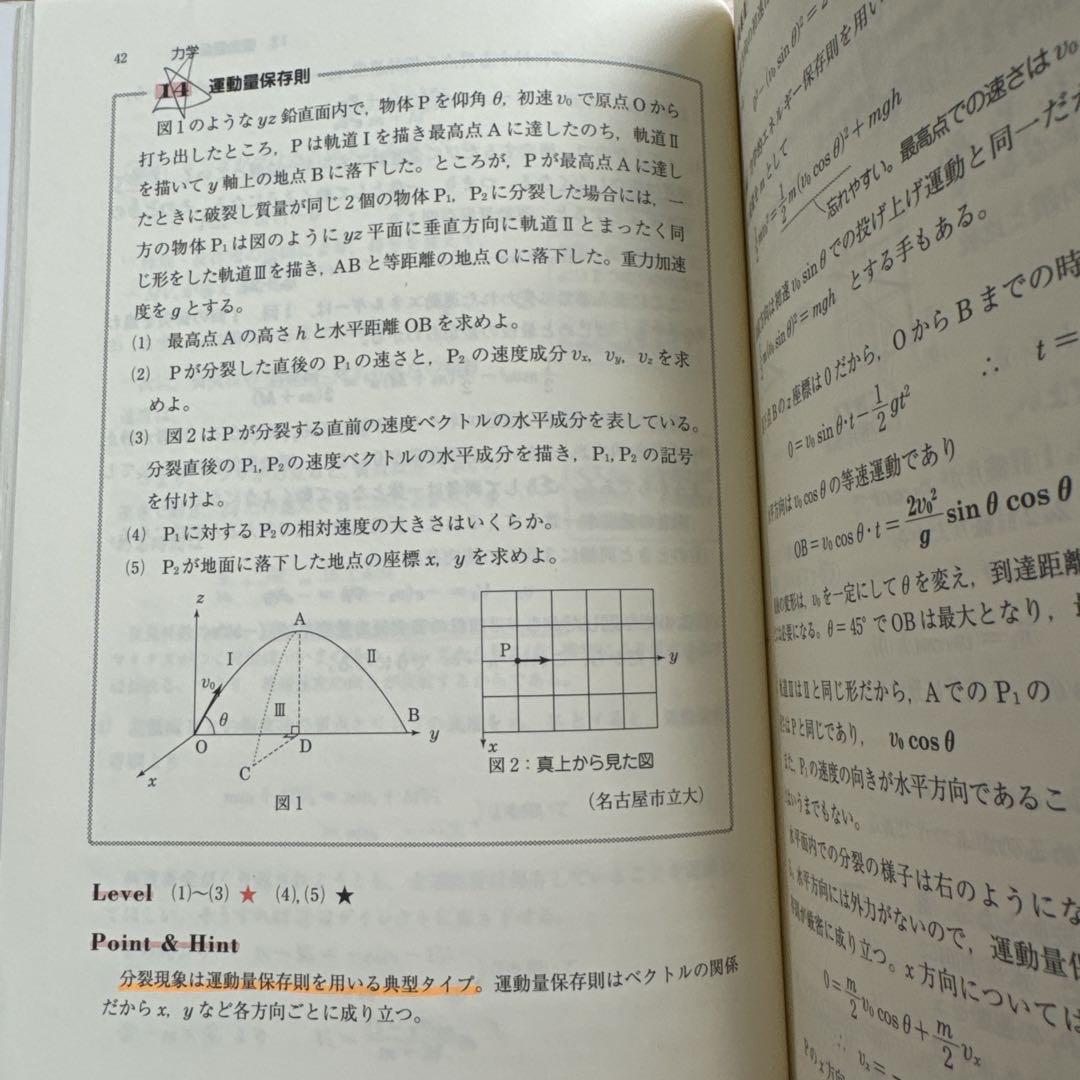 42 力学
14 運動量保存則
図1のような yz 鉛直面内で，物体 P を仰角 θ，初速 v₀ で原点 O から
打ち出したところ，P は軌道Ⅰを描き最高点 A に達したのち，軌道Ⅱ
を描いて y 軸上の地点 B に落下した。ところが，P が最高点 A に達し
たときに破裂し質量が同じ2個の物体 P₁，P₂ に分裂した場合には，一
方の物体 P₁ は図のように yz 平面に垂直方向に軌道Ⅱとまったく同
じ形をした軌道Ⅲを描き，AB と等距離の地点 C に落下した。重力加速
度を g とする。
(1) 最高点 A の高さ h と水平距離 OB を求めよ。
(2) P が分裂した直後の P₁ の速さと，P₂ の速度成分 vₓ，v_y，v_z を求
めよ。
(3) 図2は P が分裂する直前の速度ベクトルの水平成分を表している。
分裂直後の P₁，P₂ の速度ベクトルの水平成分を描き，P₁，P₂ の記号
を付けよ。
(4) P₁ に対する P₂ の相対速度の大きさはいくらか。
(5) P₂ が地面に落下した地点の座標 x，y を求めよ。
z
A
Ⅰ
Ⅱ
v₀
θ
Ⅲ
O
D
B
y
C
x
図1
P
y
x
図2：真上から見た図
（名古屋市立大）
Level (1)～(3) ★ (4),(5) ★
Point & Hint
分裂現象は運動量保存則を用いる典型タイプ。運動量保存則はベクトルの関係
だから x，y など各方向ごとに成り立つ。
0²−(v₀ sin θ)²＝2
エネルギー保存則を用い
をmとして
½m(v₀ cos θ)²＋mgh
忘れやすい。最高点での速さは v₀
は初速 v₀ sin θ での投げ上げ運動と同一だか
m(v₀ sin θ)²＝mgh とする手もある。
点Bの z 座標は0だから，O から B までの時
0＝v₀ sin θ・t−½gt² ∴ t＝
方向は v₀ cos θ の等速運動であり
OB＝v₀ cos θ・t＝2v₀²/g sin θ cos θ
の変形は，v₀ を一定にして θ を変え，到達距離
必要になる。θ＝45° で OB は最大となり，
道ⅢはⅡと同じ形だから，A での P₁ の
は P と同じであり，v₀ cos θ
また，P₁ の速度の向きが水平方向であるこ
はいうまでもない。
水平面内での分裂の様子は右のようにな
水平方向には外力がないので，運動量保
が厳密に成り立つ。x 方向については
0＝m/2 v₀ cos θ＋m/2 vₓ
∴ vₓ＝−